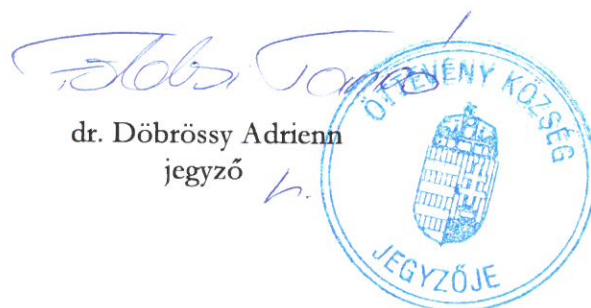 dr. Döbrössy Adrienn
jegyző
h.
ÖTTEVÉNY KÖZSÉG
JEGYZŐJE